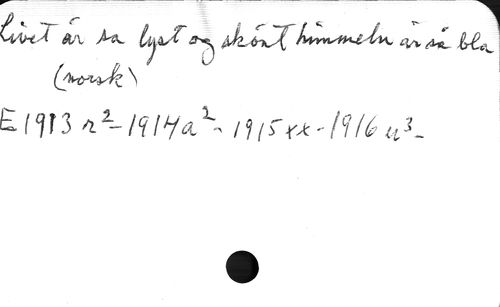 Livet är sa lyst og skönt himmeln är så bla
(norsk)
E 1913 r² - 1914 a² - 1915 xx - 1916 u³ -